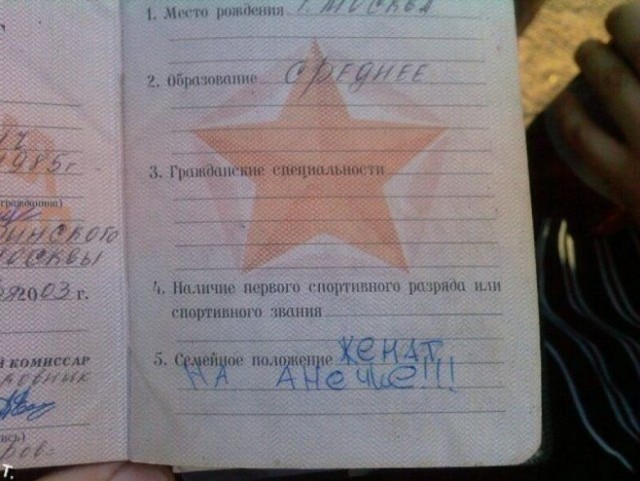 1985г
гражданина)
МОСКВЫ
2003 г.
КОМИССАР
1. Место рождения г. МОСКВА
2. Образование СРЕДНЕЕ
3. Гражданские специальности
4. Наличие первого спортивного разряда или
спортивного звания
5. Семейное положение ЖЕНАТ
НА АНЕЧКЕ!!!